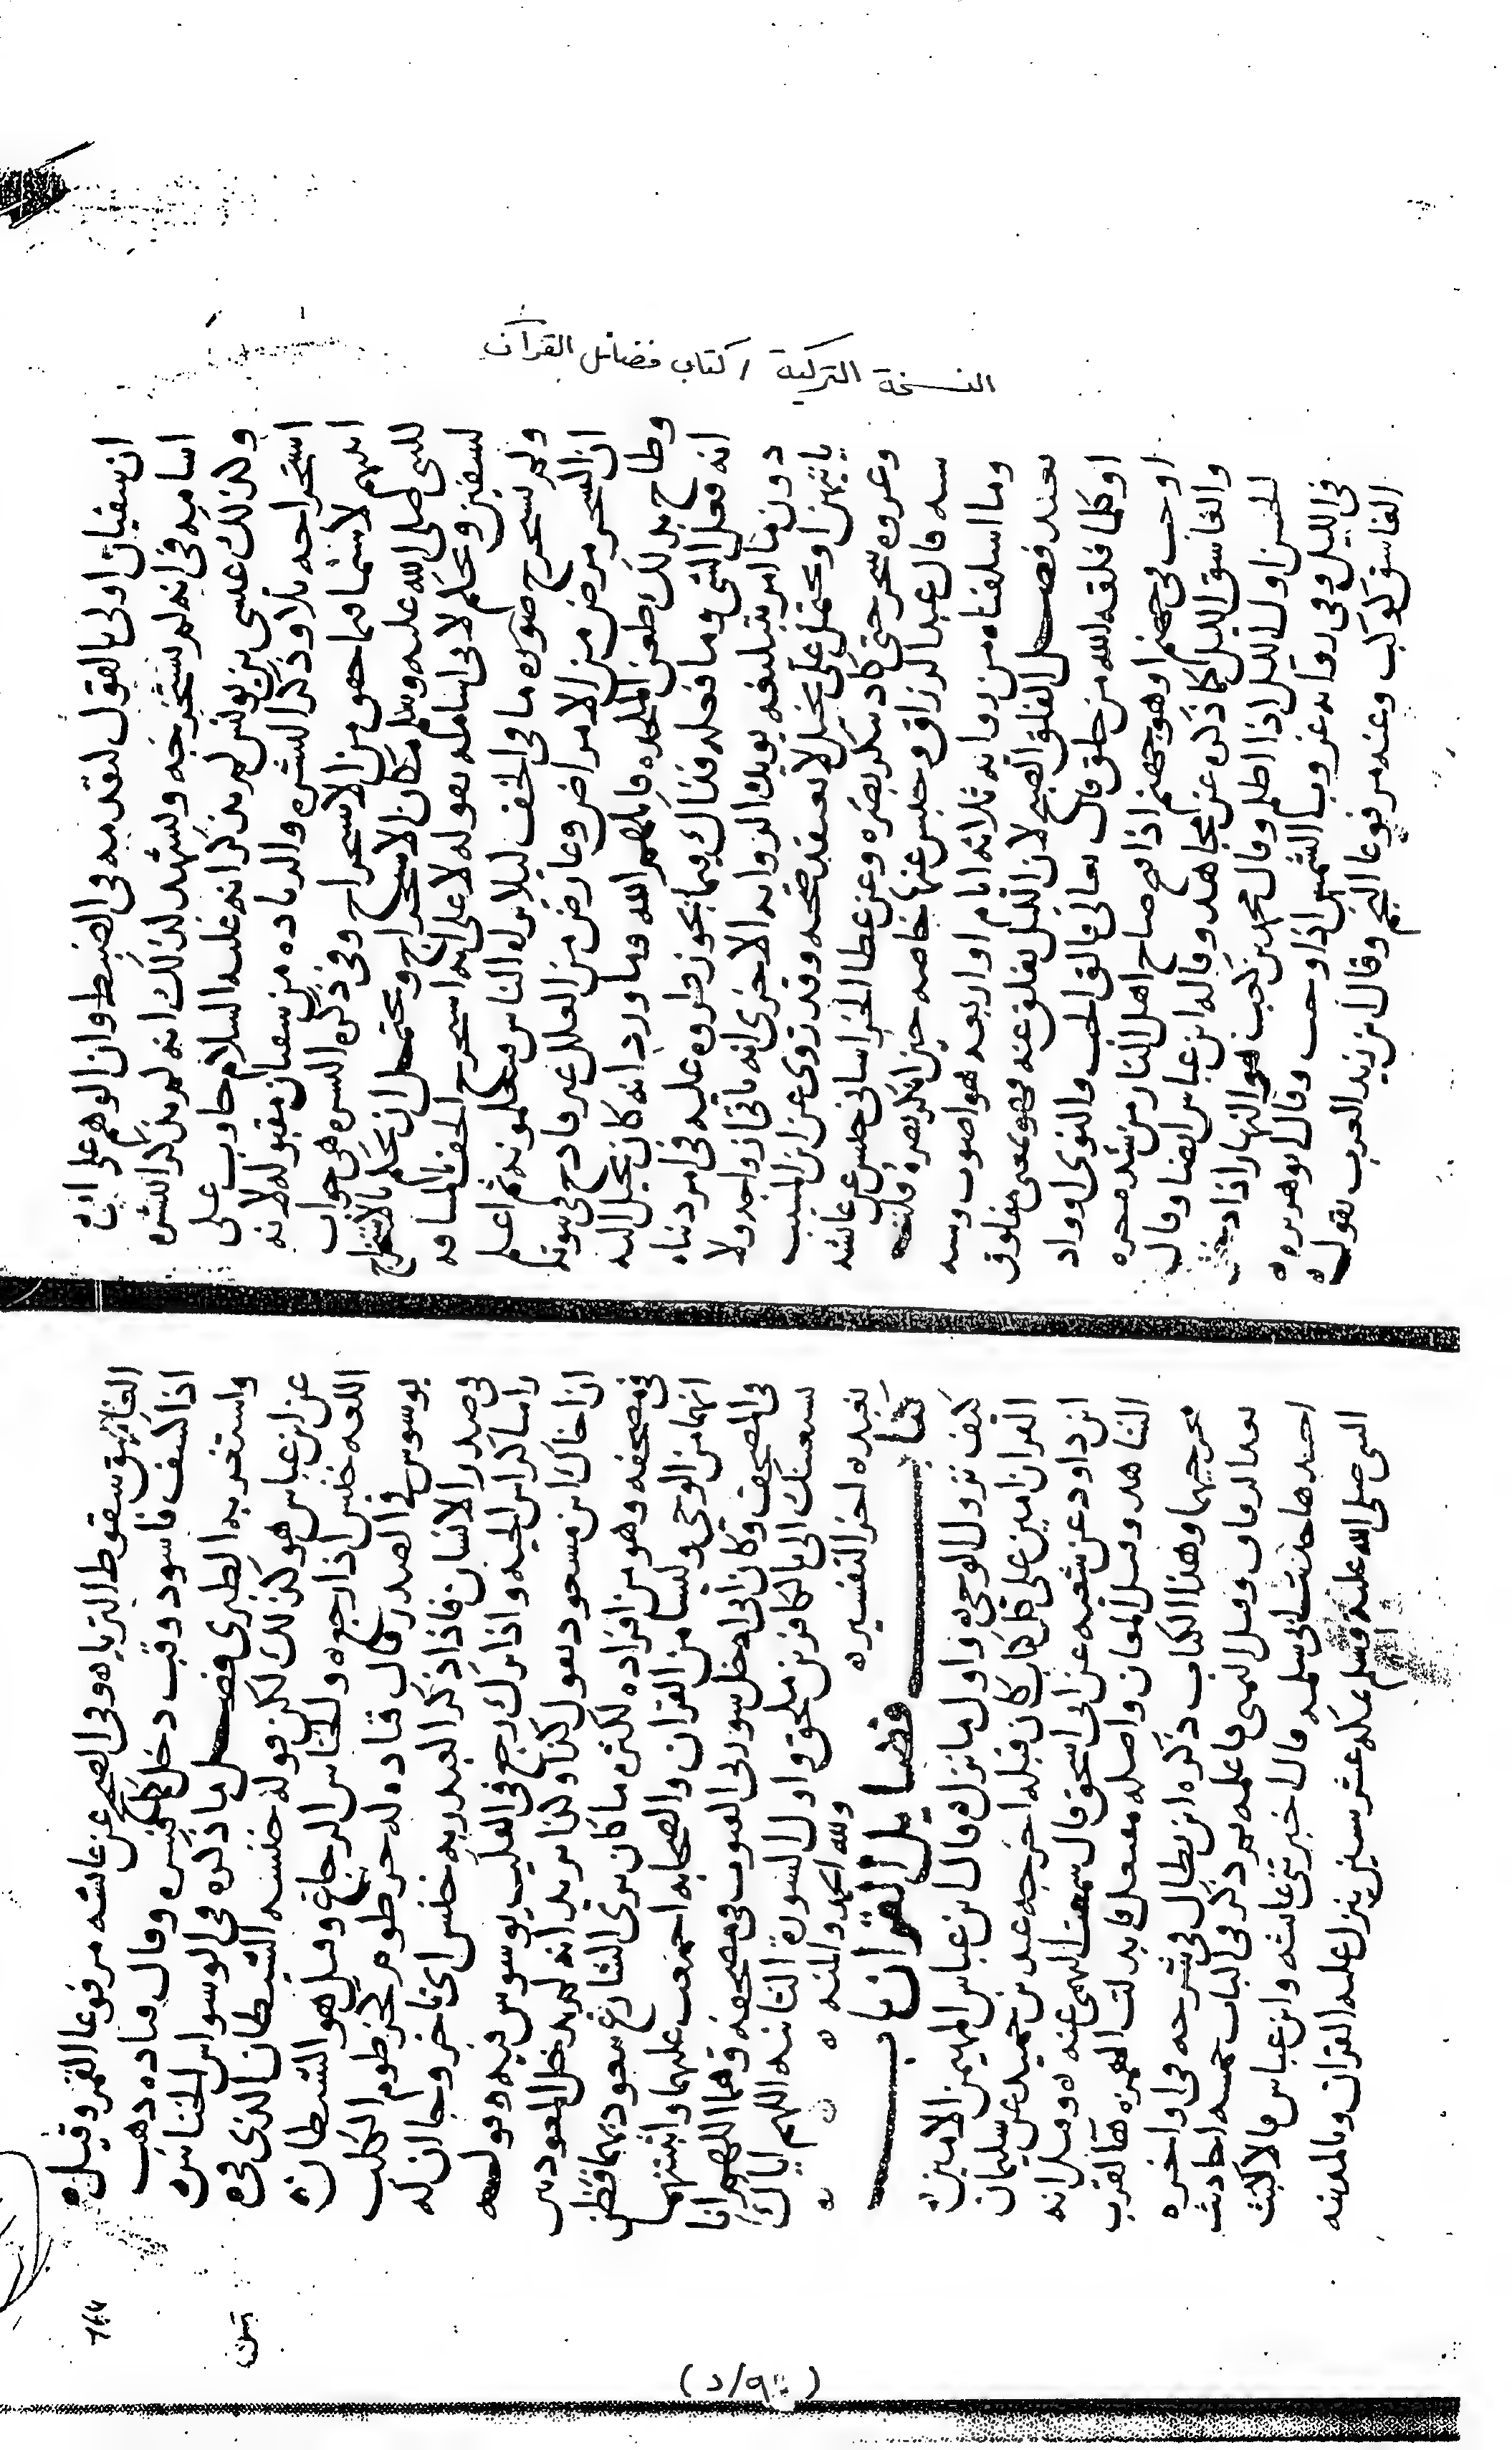 النسخة التركية / كتاب فضائل القرآن
ان سفيان اولى بالقول لتقدمه فى الضبط وان الوهم على ابى
اسامه فى انه لم يستخرجه ويشهد لذلك انه لم يذكر النشره
وكذلك عيسى بن يونس لم يذكر انه عليه السلام جاوب على
استخراجه بلا وذكر النشره والزياده من سفيان مقبوله لانه
اثبتهم لا سيما فيما حقق من الاستخراج وفى ذكره النشره هى جواب
للنبى صلى الله عليه وسلم مكان الاستخراج ويحتمل ان يحكم بالاستخراج
لسفين ويحكم لابى اسامه بقوله لا على انه استخرج الجف بالمشاقه
ولم يستخرج صوره ما فى الجف ليلا يراه الناس فيتعلمونه ثم اعلم
ان السحر مرض من الامراض وعارض من العلل غير قادح فى نبوته
وطاح بذلك طعن الملحده قاتلهم الله وما ورد انه كان يخيل اليه
انه فعل الشى وما فعله فذاك فيما يجوز طروه عليه فى امر دنياه
دون ما امر بتبليغه يويده الروايه الاخرى انه ياتى ازواجه ولا
ياتيهن او يحتمل على تخيل لا يعتقد صحته وقد روى عن ابن المسيب
وعروه سحر حتى كاد ينكر بصره وعن عطا الخراسانى حبس عن عائشه
سنه قال عبد الرزاق وحبس عنها خاصه حين انكر بصره قلت
وما اسلفناه من روايه ثلاثه ايام او اربعه هو اصوب وسنه
بعيد فصل الفلق الصبح لان الليل يفلق عنه فهو بمعنى مفلوق
او كلما فلقه الله من خلق قال تعالى فالق الحب والنوى او واد
او جب فى جهنم او هو جهنم اذا فتح صاح اهل النار من شده حره
والغاسق الليل كما ذكره عن مجاهد وقاله ابن عباس ايضا وقال
الحسن اول الليل اذا اظلم وقال محمد بن كعب هو النهار اذا دخل
فى الليل وفى روايه غروب الشمس اذا وجب وقال ابو هريره
الغاسق كوكب وعنه مرفوعا النجم وقال ابن زيد العرب تقول
الغاسق سقوط الثريا وفى الصحيح عن عائشه مرفوعا القمر وقيل
اذا كسف فاسود وقب دخل فى كسوفه وقال قتاده ذهب
واستغربه الطبرى فصل ما ذكره فى الوسواس الخناس
عن ابن عباس هو كذلك لكن قوله خنسه الشيطان الذى فى
اللغه خنس اذا رجع والخناس الرجاع وقيل هو الشيطان
يوسوس فى الصدر قال قتاده له خرطوم كخرطوم الكلب
فى صدر الانسان فاذا ذكر العبد ربه خنس اى تاخر وجا ان له
راسا كراس الحيه واذا ترك رجع فى القلب يوسوس فيه وقوله
ان اخاك ابن مسعود يقول كذا وكذا يريد انه لم يدخل المعوذتين
فى مصحفه وهو من افراده لكثره ما كان يرى الشارع يتعوذ بهما فظن
انهما من الوحى وليسا من القران والصحابه اجمعت عليهما واثبتتهما
فى المصحف وكان ابى ادخل سورتى القنوت فى مصحفه وهما اللهم انا
نستعينك الى بالكافرين ملحق واول السورة الثانيه اللهم اياك
نعبده اخر التفسير ولله الحمد والمنه
كتاب فضايل القران باب
كيف نزول الوحى واول ما نزل قال ابن عباس المهيمن الامين
القران امين على كل كتاب كان قبله اخرجه عبد بن حميد عن سليمان
ابن داود عن شعبه عن ابى اسحق قال سمعت التيمى عنه وقيل انه
الشاهد وقيل المعان واصله مفيعل فابدلت الهمزه ها لقرب
مخرجيهما وهذا الكتاب ذكره ابن بطال فى شرحه فى اواخره
ثم ذكر فى الباب خمسه احاديث
احدها حديث ابى سلمه قال اخبرتنى عائشه وابن عباس قالا لبث
النبى صلى الله عليه وسلم بمكه عشر سنين ينزل عليه القران وبالمدينه